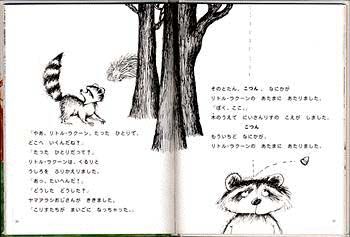 「やあ、リトル・ラクーン、たった ひとりで、
どこへ いくんだね？」
「たった ひとりだって？」
リトル・ラクーンは、くるりと
うしろを ふりかえりました。
「あっ、たいへんだ！」
「どうした どうした？」
ヤマアラシおじさんが ききました。
「こりすたちが まいごに なっちゃった。」
そのとたん、こつん。なにかが
リトル・ラクーンの あたまに あたりました。
「ぼく、ここ。」
木のうえで にいさんりすの こえが しました。
こつん
もういちど なにかが
リトル・ラクーンの あたまに あたりました。